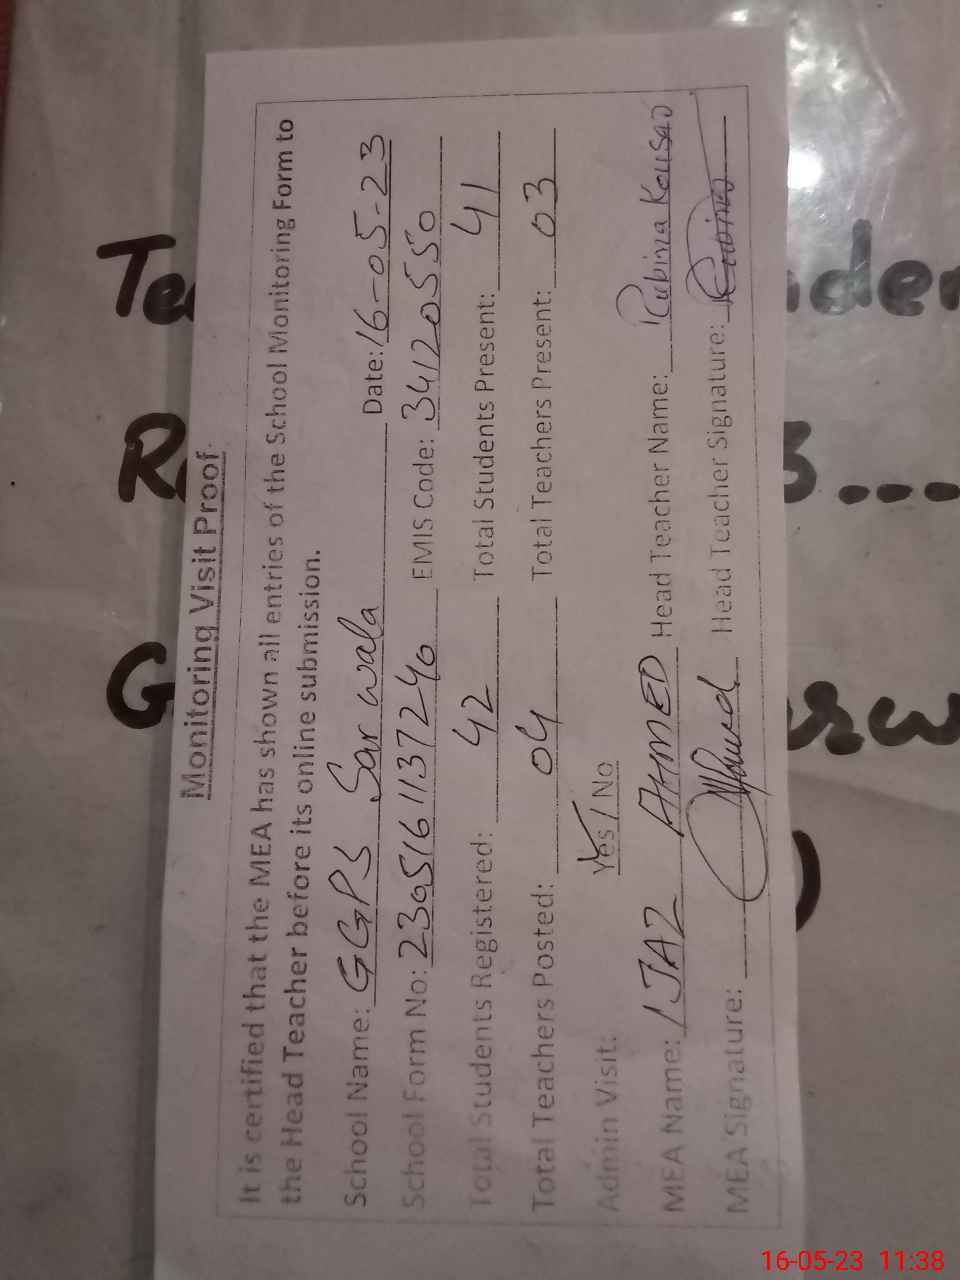 Monitoring Visit Proof
It is certified that the MEA has shown all entries of the School Monitoring Form to
the Head Teacher before its online submission.
School Name: GGPS Sar wala Date: 16-05-23
School Form No: 2395161137240 EMIS Code: 34120550
Total Students Registered: 42 Total Students Present: 41
Total Teachers Posted: 04 Total Teachers Present: 03
Admin Visit: Yes / No
MEA Name: IJAZ AHMED Head Teacher Name: Rubina Kousar
MEA Signature: Ahmed Head Teacher Signature: Rubina
16-05-23 11:38